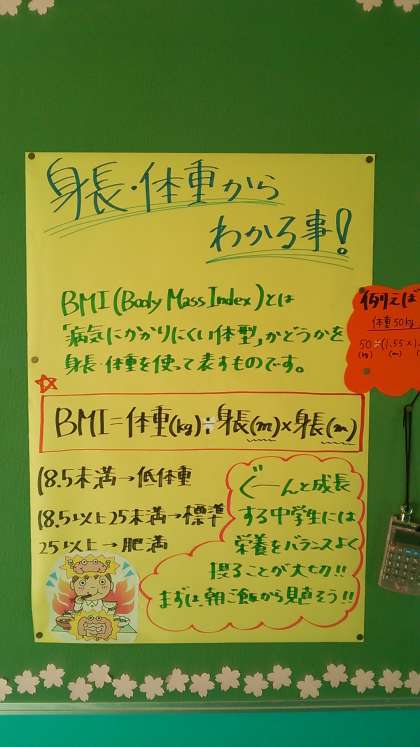 身長・体重から
わかる事!
BMI(Body Mass Index)とは
「病気にかかりにくい体型」かどうかを
身長・体重を使って表すものです。
BMI=体重(kg)÷身長(m)×身長(m)
18.5未満→低体重
18.5以上25未満→標準
25以上→肥満
ぐーんと成長
する中学生には
栄養をバランスよく
摂ることが大切!!
まずは、朝ご飯から見直そう!!
例えば
体重50kg
50÷(1.55×1.
(kg) (m) (